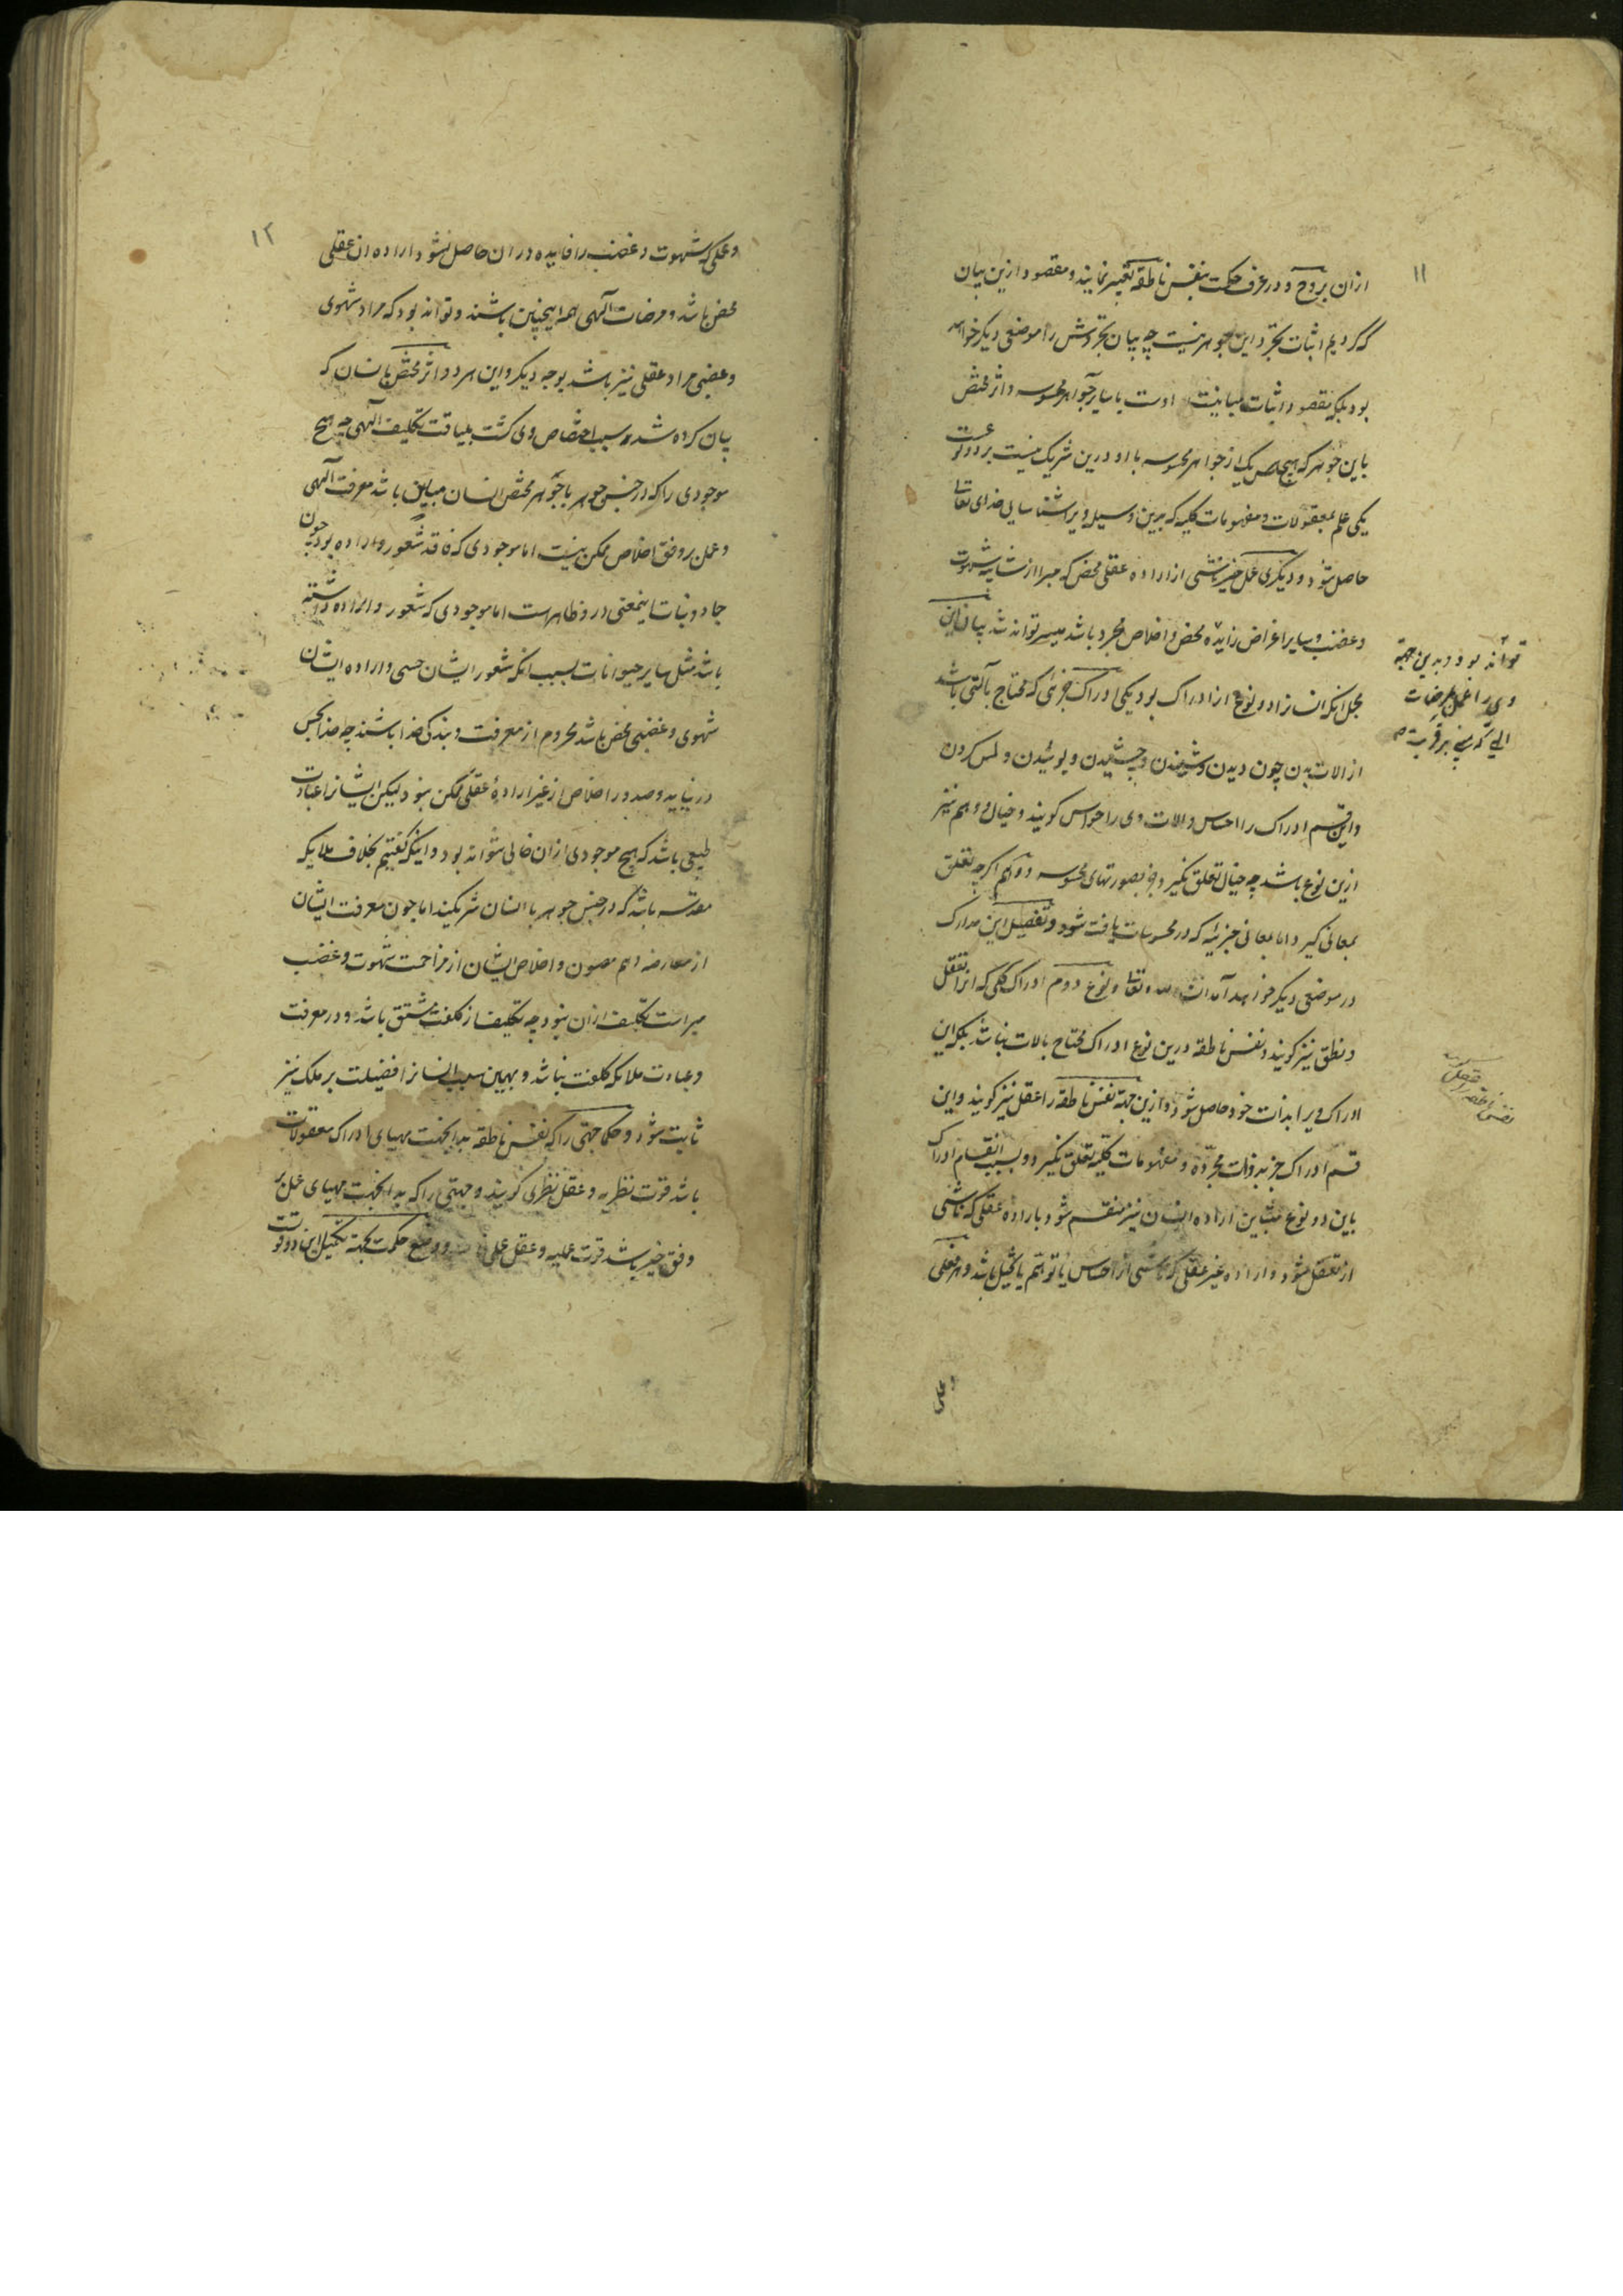 ۱۱
ازان بروح و در عرف حکمت بنفس ناطقه تعبیر نمایند و مقصود ازین بیان
که کردیم اثبات تجرد این جوهر نیست چه بیان تجردش را موضعی دیکر خواهد
بود بلکه مقصود اثبات مباینت اوست با سایر جواهر محسوسه و اثر مختص
باین جوهر که هیچ یک از جواهر محسوسه با او درین شریک نیست بر دو نوعست
یکی علم بمعقولات و مفهومات کلیه که برین وسیله ویرا شناسایی خدای تعالی
حاصل شود و دیکری عمل خیر ناشی از اراده عقلی محض که مبرا از شایبه شهوت
و غضب و سایر اغراض زایده محض و اخلاص مجرد باشد میسر تواند شد بیان این
مجمل انکه انسانرا دو نوع از ادراک بود یکی ادراک جزئی که محتاج بآلتی باشد
از الات بدن چون دیدن و شنیدن و چشیدن و بوئیدن و لمس کردن
و این قسم ادراک را احساس و الات وی را حواس کویند و خیال و وهم نیز
ازین نوع باشد چه خیال تعلق نکیرد جز بصورتهای محسوسه و وهم اکرچه تعلق
بمعانی کیرد اما بمعانی جزئیه که در محسوسات یافت شود و تفصیل این مدارک
در موضعی دیکر خواهد آمد انشاء الله تعالی و نوع دوم ادراک کلی که انرا تعقل
و نطق نیز کویند و نفس ناطقه درین نوع ادراک محتاج بالات نباشد بلکه این
ادراک ویرا بذات خود حاصل شود و ازین جهة نفس ناطقه را عقل نیز کویند و این
قسم ادراک جز بذوات مجرّده و مفهومات کلیه تعلق نکیرد و بسبب انقسام ادراک
باین دو نوع متباین اراده انسان نیز منقسم شود باراده عقلی که ناشی
از تعقل شود و اراده غیر عقلی که ناشی از احساس یا توهّم یا تخیل باشد و هر فعلی
تواند بود و بدین جهة
وی را عمل بمرضات
نفس ناطقه را عقل
و عملی
۱۲
و عملی که شهوت و غضب را فایده در ان حاصل نشود اراده ان عقلی
محض باشد و مرضات آلهی همه اینچنین باشند و تواند بود که مراد شهوی
و غضبی مراد عقلی نیز باشد بوجه دیکر و این هر دو اثر مختص بانسان که
بیان کرده شد سبب اختصاص وی کشت بلیاقت تکلیف الهی چه هیچ
موجودی را که در جنس جوهر با جوهر مختص انسان مباین باشد معرفت الهی
و عمل بر وفق اخلاص ممکن نیست اما موجودی که فاقد شعور و اراده بود چون
جماد و نبات اینمعنی درو ظاهرست اما موجودی که شعور و اراده داشته
باشد مثل سایر حیوانات بسبب انکه شعور ایشان حسی و اراده ایشان
شهوی و غضبی محض باشد محروم از معرفت و بندکی خدا باشند چه خدا بحس
درنیاید و صدور اخلاص از غیر ارادهٔ عقلی ممکن نبود لیکن ایشانرا عبادت
طبیعی باشد که هیچ موجودی ازان خالی نتواند بود و اینکه کفتیم بخلاف ملایکه
مقدسه باشد که در جنس جوهر با انسان شریکند اما چون معرفت ایشان
از معارضه وهم مصون و اخلاص ایشان از مزاحمت شهوت و غضب
مبراست تکلیف ازان نبود چه تکلیف از کلفت مشتق باشد و در معرفت
و عبادت ملائکه کلفت نباشد و بهمین سبب انسانرا افضیلت بر ملک نیز
ثابت شود و حکما جهتی را که نفس ناطقه بدانجهت مهیای ادراک معقولات
باشد قوت نظریه و عقل نظری کویند و جهتی را که بدانجهت مهیای عمل بر
وفق خیر باشد قوت عملیه و عقل عملی و وضع حکمت بجهة تکمیل این دو قوت